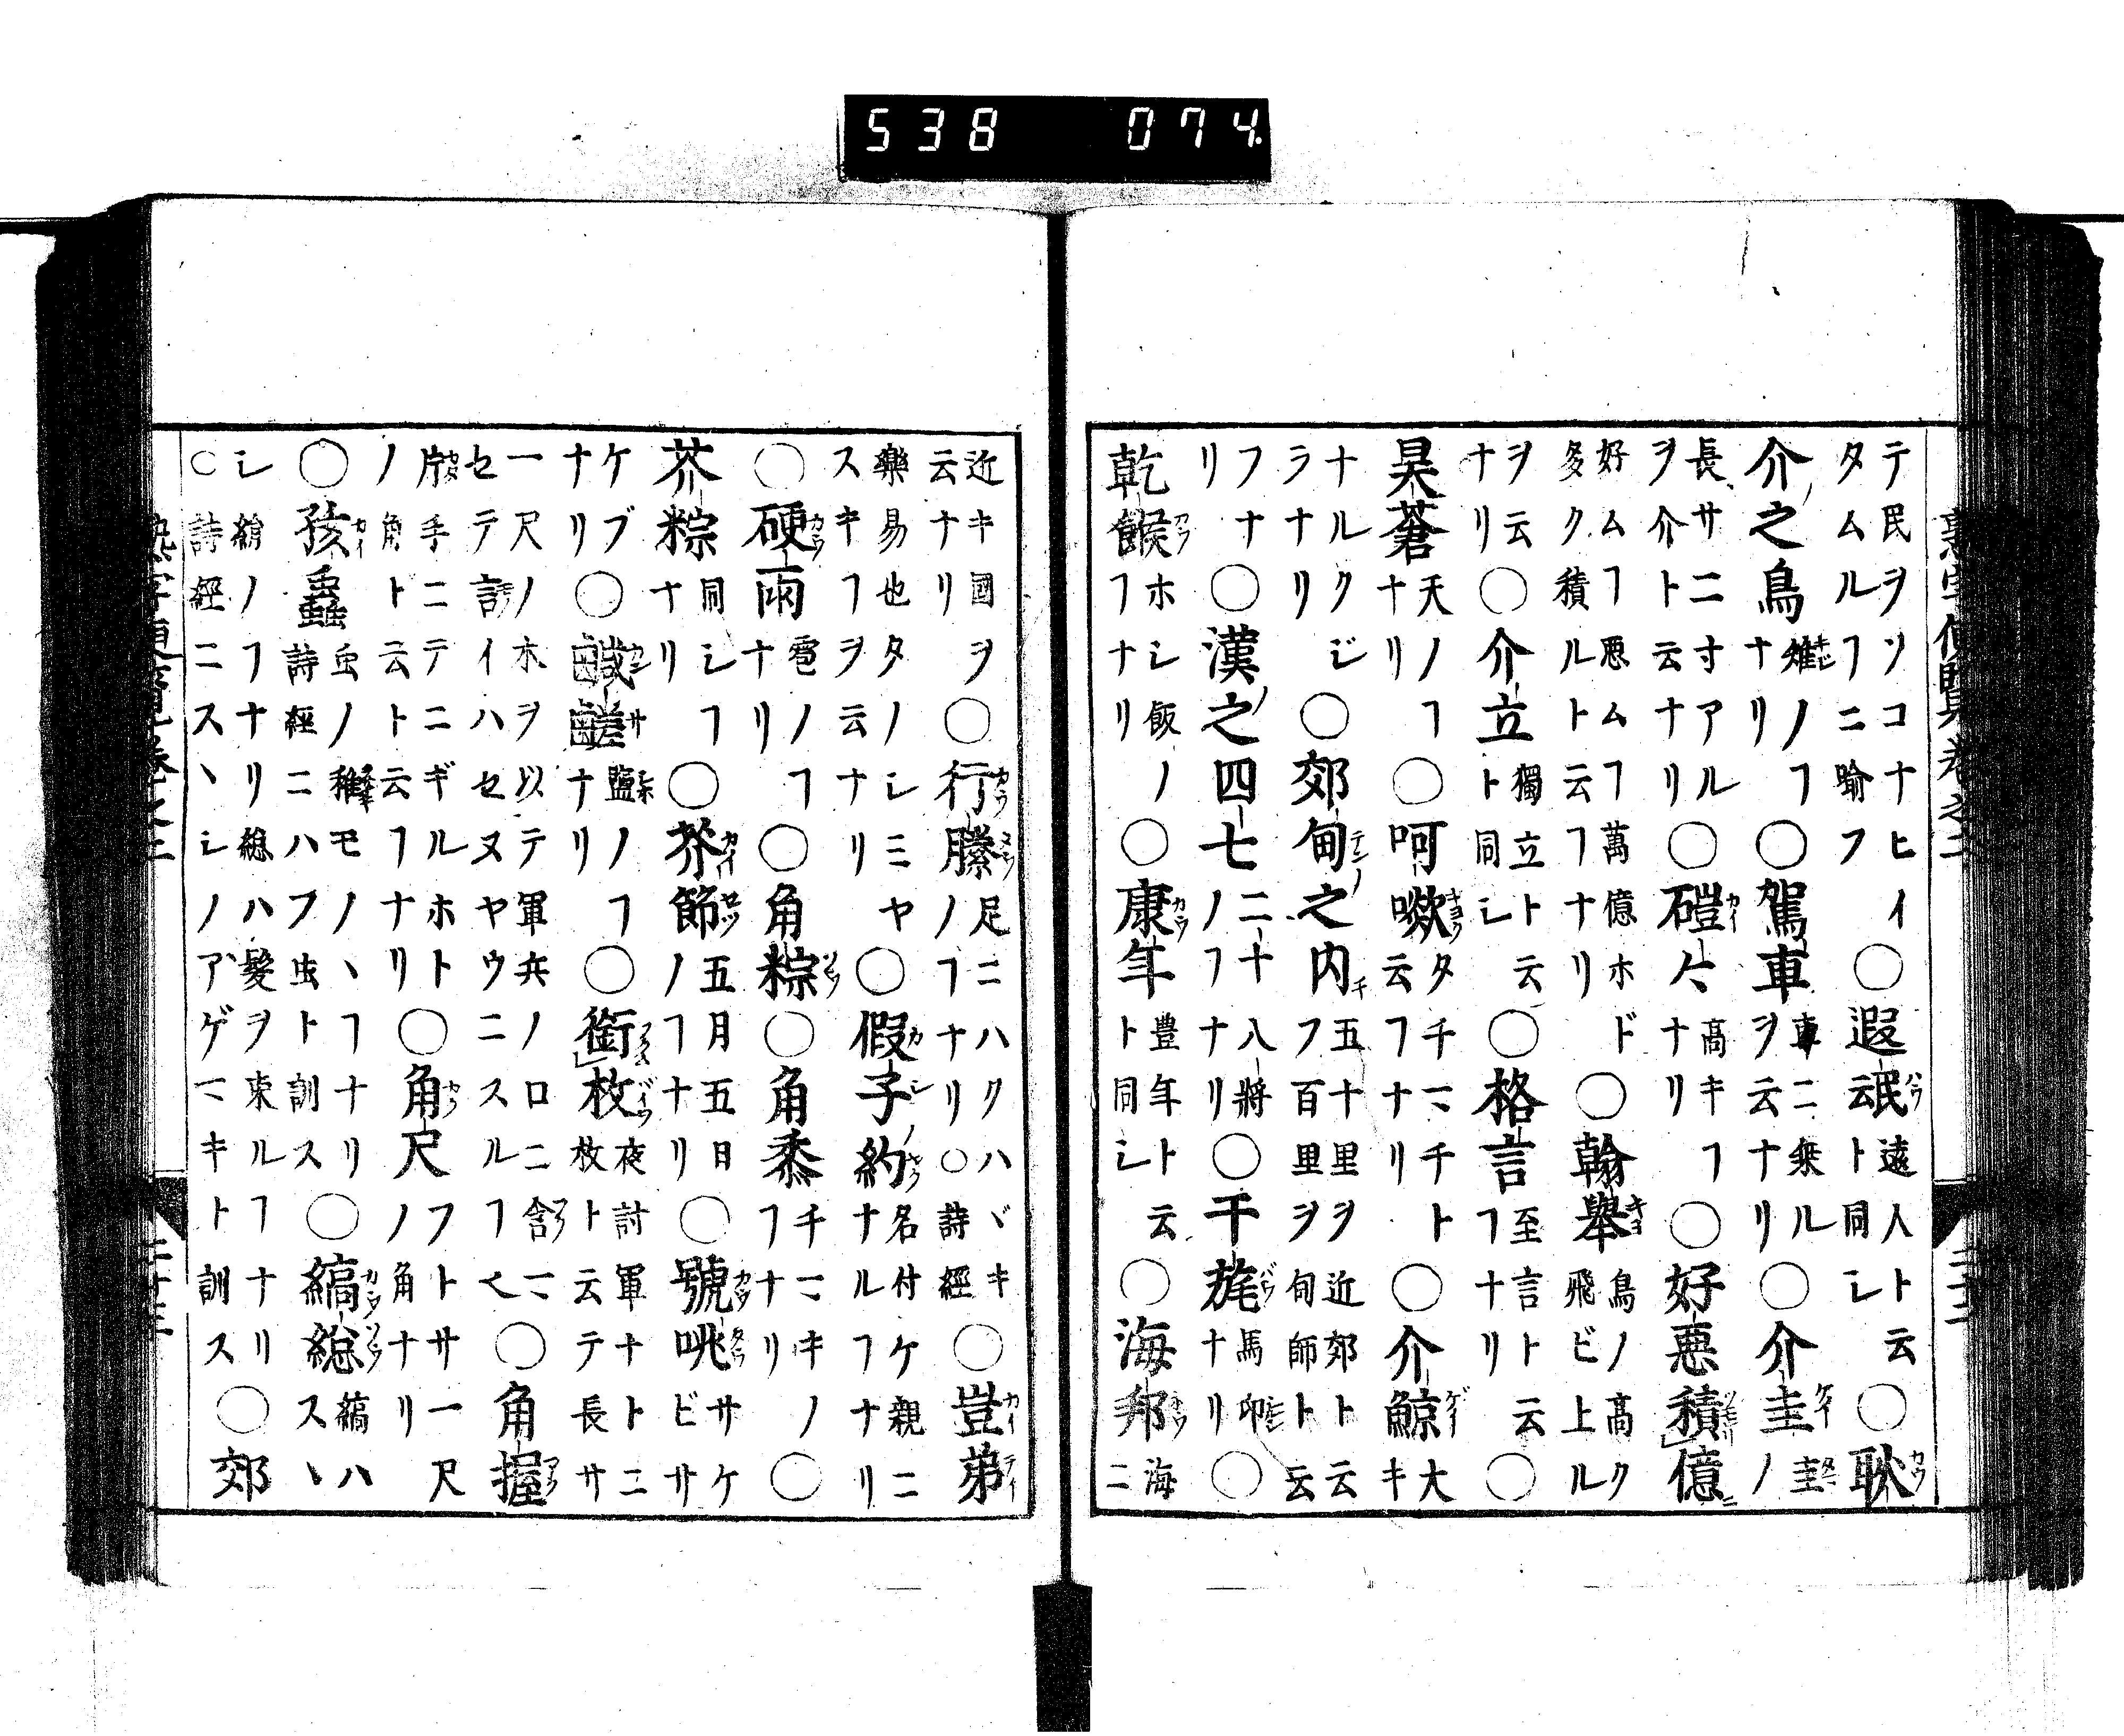 538 074
テ民ヲソコナヒイ○遐氓遠人ト云○耿
タムルヿニ喩フ云ト同シ
介之鳥雉ノヿ○駕車車ニ乗ル○介圭圭ノ
ナリヲ云ナリ
長サニ寸アル○磑〻高キヿ○好悪積億
ヲ介ト云ナリナリ
好ムヿ悪ムヿ萬億ホド○翰舉鳥ノ高ク
多ク積ルト云フヿナリ飛ビ上ル
ヲ云○介立獨立ト云○格言至言ト云○
ナリト同シヿナリ
昊蒼天ノヿ○呵歟タチマチト○介鯨大
ナリ云フナリキ
ナルクジ○郊甸之内五十里ヲ近郊ト云
ラナリフ百里ヲ甸師ト云
フナ○漢之四七二十八將○干旄馬印○
リノヿナリナリ
乾餱ホシ飯ノ○康年豊年ト云○海邦海ニ
ヿナリト同シ
近キ國ヲ○行縢足ニハクハヾキ○豈弟
云ナリノヿナリ○詩經
樂易也タノシミヤ○假子約名付ケ親ニ
スキヿヲ云ナリナルヿナリ
○硬雨雹ノヿ○角粽○角黍チマキノ○
ナリヿナリ
芥粽同シヿ○芥節五月五日○號咷サケ
ナリノヿナリビサ
ケブ○鹹鹺鹽ノヿ○銜枚夜討軍ナトニ
ナリナリ枚ト云テ長サ
一尺ノ木ヲ以テ軍兵ノ口ニ含マ○角握
セテ言イハセヌヤウニスルヿ
片手ニテニギルホト○角尺フトサ一尺
ノ角ト云ト云フナリノ角ナリ
○孩蟲虫ノ稚モノヽヿナリ○縞總縞ハ
詩經ニハフ虫ト訓ススヽ
シ縞ノヿナリ總ハ髮ヲ束ルヿナリ○郊
○詩經ニスヽシノアゲマキト訓ス